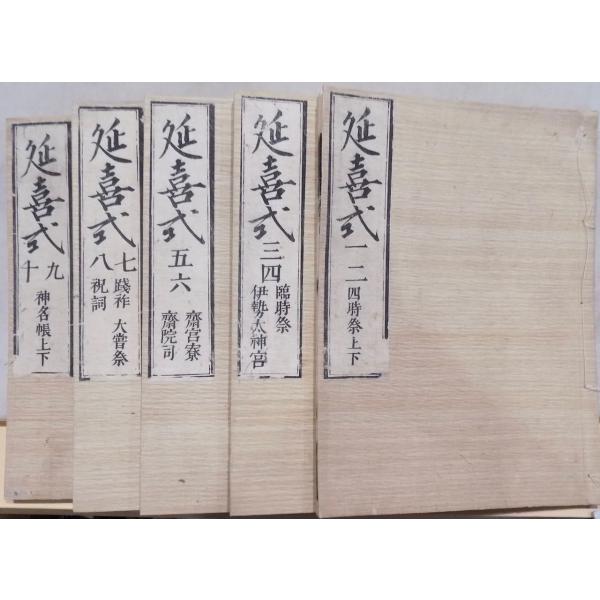 延喜式
一二
四時祭上下
延喜式
三四
臨時祭
伊勢太神宮
延喜式
五六
齋宮寮
齋院司
延喜式
七八
踐祚 大嘗祭
祝詞
延喜式
九十
神名帳上下